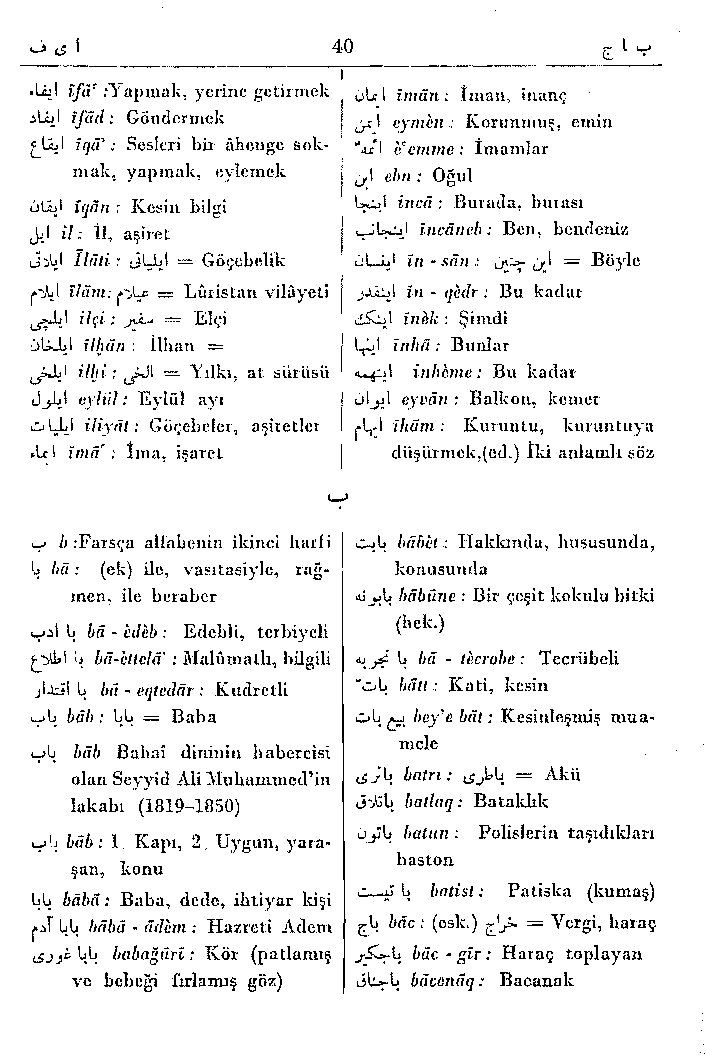 أ ى ف 40 ب ا ج
ايفاء îfâ' :Yapmak, yerine getirmek
ايفاد îfâd : Göndermek
ايقاع îqâ' : Sesleri bir âhenge sok-
mak, yapmak, eylemek
ايقان îqân : Kesin bilgi
ايل il : İl, aşiret
ايلاتى Îlâti : ايلياتى = Göçebelik
ايلام îlâm: عيلام = Lûristan vilâyeti
ايلچى ilçi : سفير = Elçi
ايلخان îlhân : İlhan =
ايلخى ilhi : الخى = Yılkı, at sürüsü
ايلول eylûl : Eylûl ayı
ايليات iliyât : Göçebeler, aşiretler
ايماء îmâ' : İma, işaret
ايمان îmân : İman, inanç
ايمن eymèn : Korunmuş, emin
ائمه è'emme : İmamlar
ابن ebn : Oğul
اينجا incâ : Burada, burası
اينجانب incâneb : Ben, bendeniz
اينسان in - sân : اين چنين = Böyle
اينقدر in - qèdr : Bu kadar
اينك inèk : Şimdi
اينها inhâ : Bunlar
اينهمه inhème : Bu kadar
ايوان eyvân : Balkon, kemer
ايهام îhâm : Kuruntu, kuruntuya
düşürmek,(ed.) İki anlamlı söz
ب
ب b :Farsça alfabenin ikinci harfi
با bâ : (ek) ile, vasıtasiyle, rağ-
men, ile beraber
با ادب bâ - èdèb : Edebli, terbiyeli
با اطلاع bâ-èttelâ' : Malûmatlı, bilgili
با اقتدار bâ - eqtedâr : Kudretli
باب bâb : بابا = Baba
باب bâb Bahaî dininin habercisi
olan Seyyid Ali Muhammed'in
lakabı (1819–1850)
باب bâb : 1. Kapı, 2. Uygun, yara-
şan, konu
بابا bâbâ : Baba, dede, ihtiyar kişi
بابا آدم bâbâ - âdèm : Hazreti Adem
بابا غورى babağûrî : Kör (patlamış
ve bebeği fırlamış göz)
بابت bâbèt : Hakkında, hususunda,
konusunda
بابونه bâbûne : Bir çeşit kokulu bitki
(hek.)
با تجربه bâ - tècrobe : Tecrübeli
باتّ bâtt : Kati, kesin
بيع بات bey'e bât : Kesinleşmiş mua-
mele
باترى batrı : باطرى = Akü
باتلاق batlaq : Bataklık
باتون batun : Polislerin taşıdıkları
baston
با تيست batist : Patiska (kumaş)
باج bâc : (osk.) خراج = Vergi, haraç
باجگير bâc - gîr : Haraç toplayan
باجناق bâcenâq : Bacanak